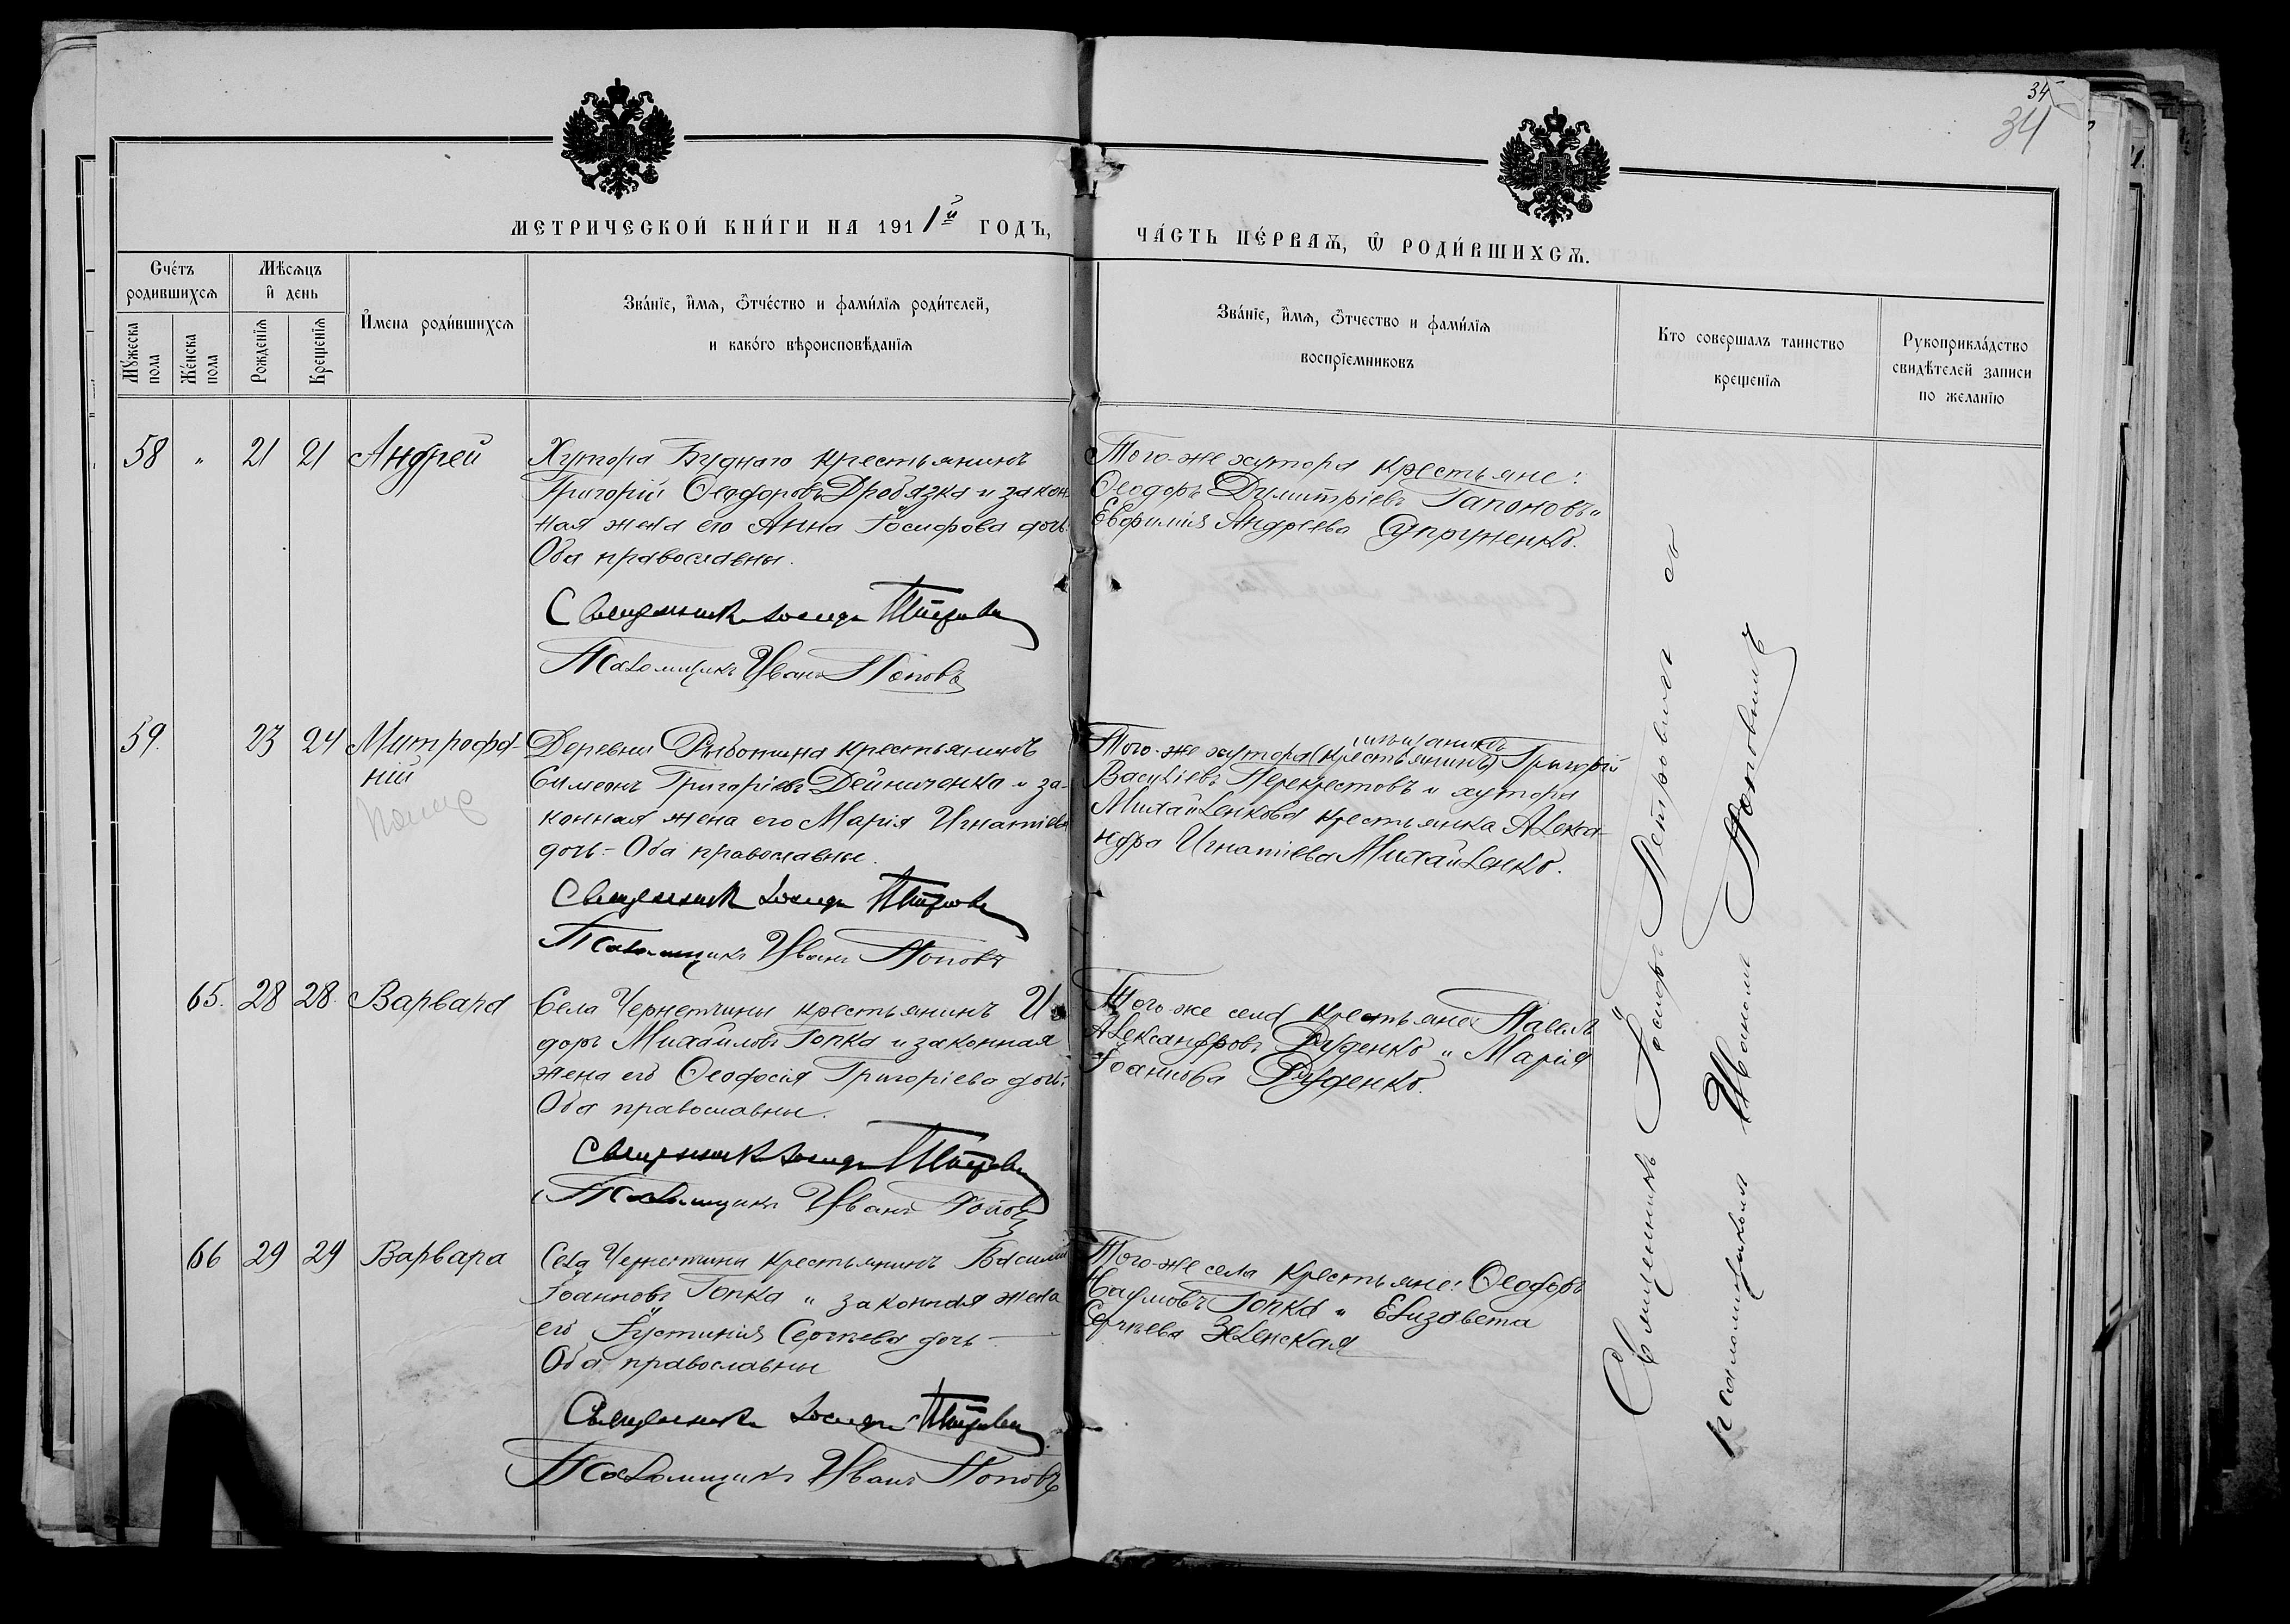 34
34
МЕТРИЧЕСКОЙ КНИ́ГИ НА 1911й ГОДЪ,
ЧА́СТЬ ПЕ́РВАѦ, Ѡ҃ РОДИ́ВШИХСѦ.
Сче́тъ родившихсѧ
Мѣсѧцъ и҆ день
Мꙋ́жеска пола
Же́нска пола
Рожденїѧ
Крещенїѧ
И҆́мена роди́вшихсѧ
Зва́нїе, и҆́мѧ, ѻ҆́тче́ство и фами́лїѧ роди́телей,
и како́го вѣроисповѣ́данїѧ
Зва́нїе, и҆́мѧ, ѻ҆́тчество и фами́лїѧ
воспрїемниковъ
Кто совершалъ таинство
крещенїѧ
Рꙋкоприкла́дство
свидѣ́телей записи
по желанїю
58 „ 21 21 Андрей
Хутора Буднаго крестьянинъ
Григорій Ѳеодоровъ Дробязка и закон-
ная жена его Анна Іосифова дочь
Оба православны.
Священникъ Іосифъ Петровъ
Псаломщикъ Иванъ Поповъ
Того-же хутора крестьяне:
Ѳеодоръ Димитріевъ Гапоновъ и
Евфимія Андреева Супруненко.
59. 23 24 Митрофа-
ній
Деревни Рыботина крестьянинъ
Симеонъ Григоріевъ Дейниченко и за-
конная жена его Марія Игнатіева
дочь - Оба православны.
Священникъ Іосифъ Петровъ
Псаломщикъ Иванъ Поповъ
Того-же хутора (крестьянинъ) Григорій
Василіевъ Перекрестовъ и хутора
Михайленкова крестьянка Алекса-
ндра Игнатіева Михайленко.
65. 28 28 Варвара
Села Чернетчины крестьянинъ Иси-
доръ Михайловъ Гопка и законная
жена его Ѳеодосія Григоріева дочь
Оба православны.
Священникъ Іосифъ Петровъ
Псаломщикъ Иванъ Поповъ
Того-же села крестьяне: Павелъ
Александровъ Руденко и Марія
Іоаннова Руденко.
66 29 29 Варвара
Села Чернетчины крестьянинъ Василій
Іоанновъ Гопка и законная жена
его Іустинія Сергеева дочь -
Оба православны
Священникъ Іосифъ Петровъ
Псаломщикъ Иванъ Поповъ
Того-же села крестьяне: Ѳеодоръ
Наумовъ Гопка и Елизавета
Сергеева Зеленская
Священникъ Іосифъ Петровъ съ
псаломщикомъ Иваномъ Поповымъ